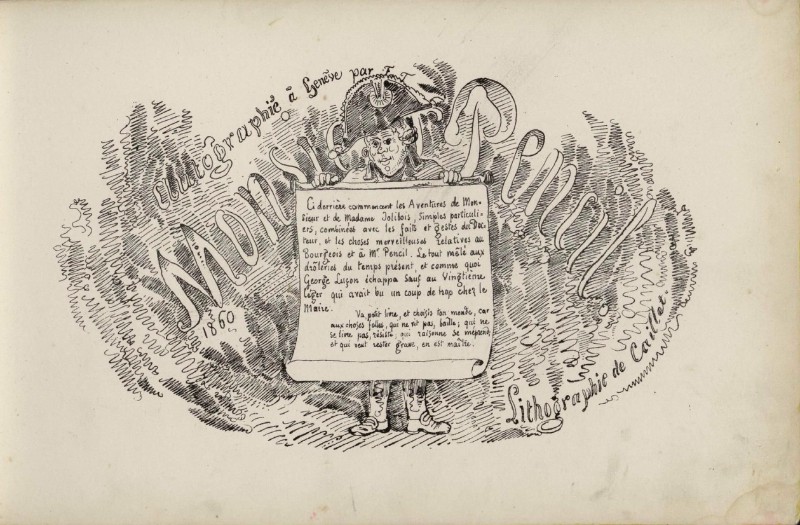 Autographié à Genève par F. T.
Monsieur Pencil
1860
Ci derrière commencent les Aventures de Mon-
sieur et de Madame Jolibois, Simples particuli-
ers, combinées avec les faits et gestes du Doc-
teur, et les choses merveilleuses relatives au
Bourgeois et à Mr Pencil. Le tout mêlé aux
drôleries du temps présent, et comme quoi
George Luçon échappa sauf au Vingtième
Léger qui avait bu un coup de trop chez le
Maire.
Va petit livre, et choisis ton monde, car
aux choses folles, qui ne rit pas, baille; qui ne
se livre pas, résiste; qui raisonne se méprend,
et qui veut rester grave, en est maître.
Lithographie de Caillet.